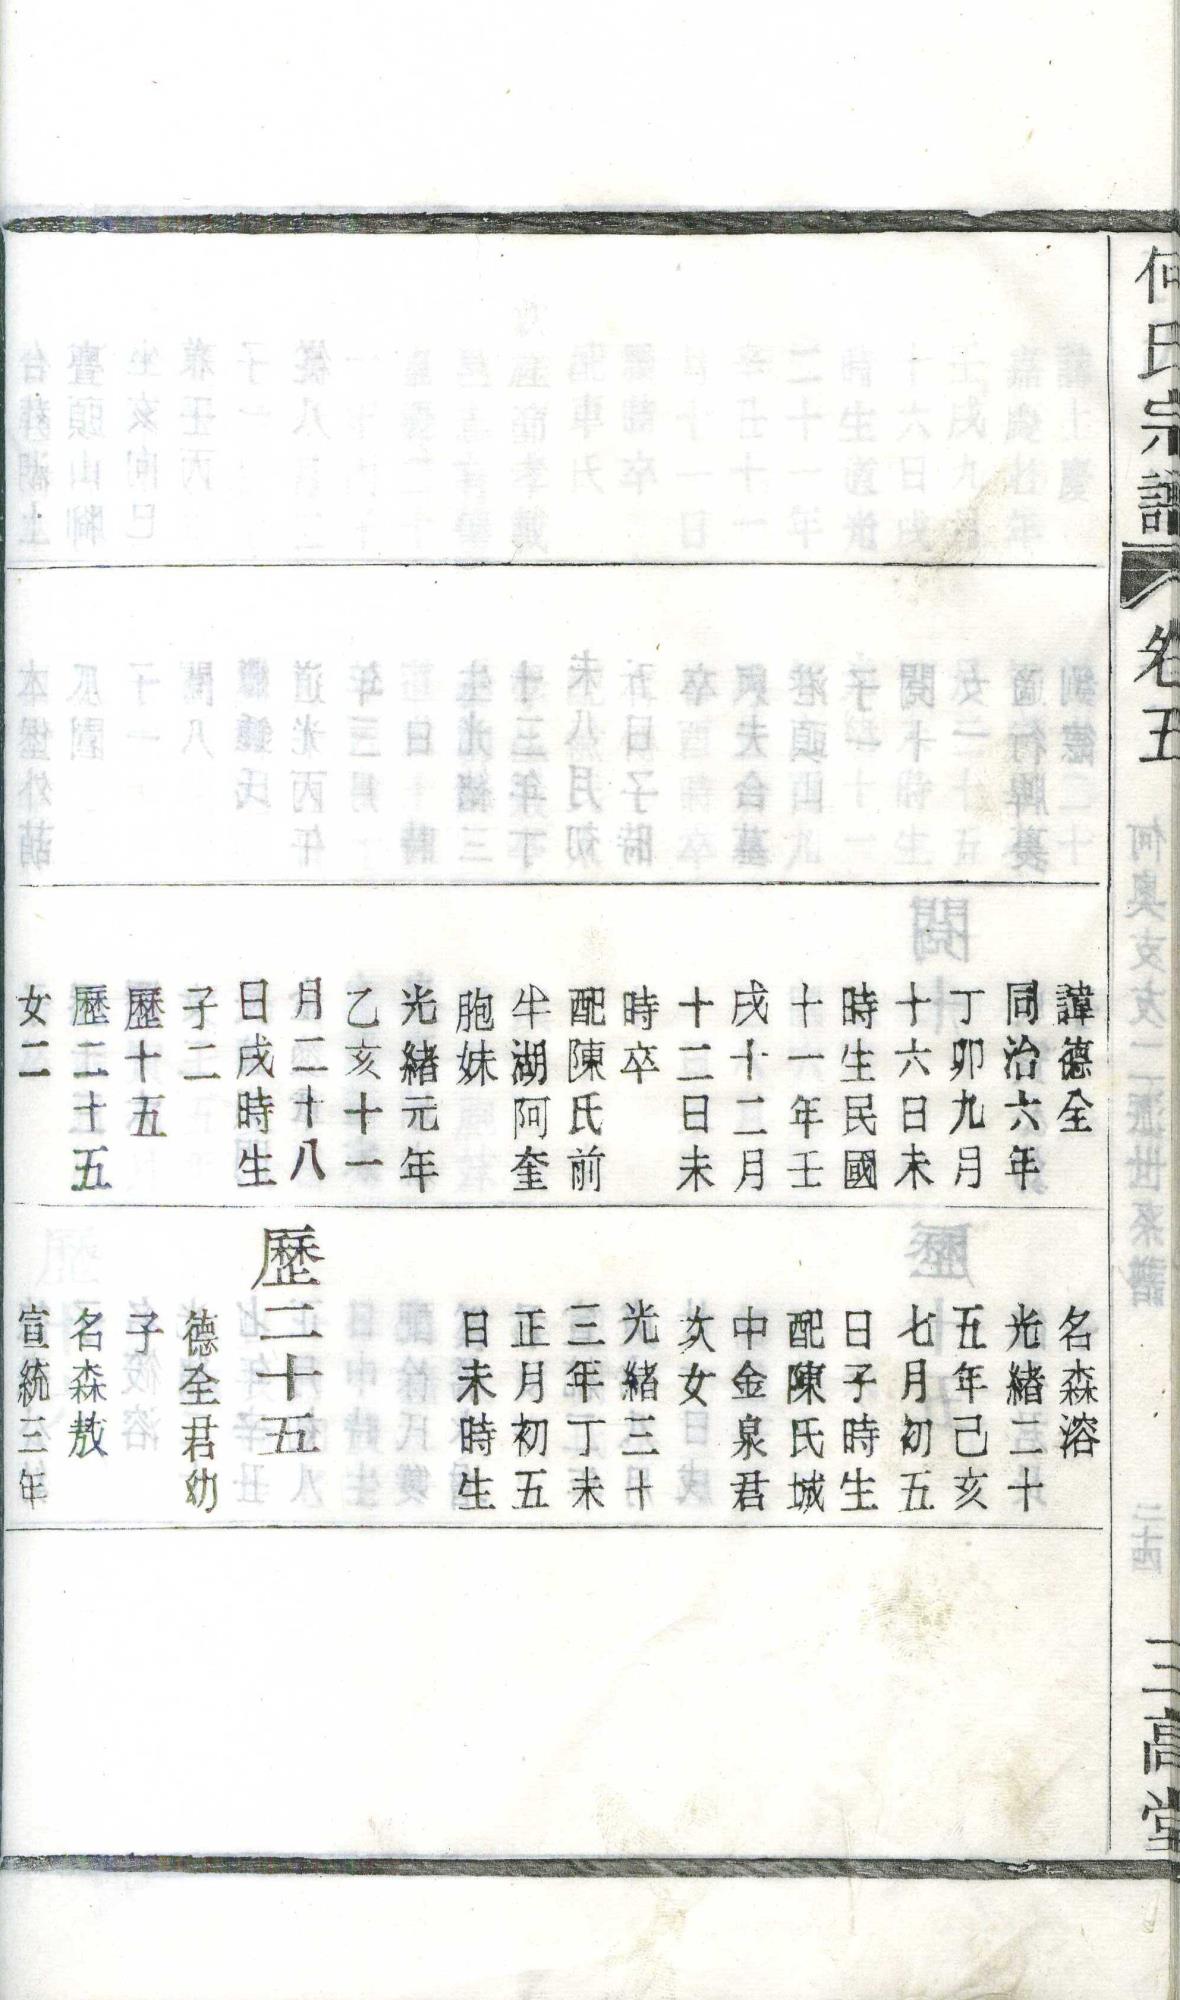 何氏宗譜
卷五
三高堂
諱德全
同治六年
丁卯九月
十六日未
時生民國
十一年壬
戌十二月
十二日未
時卒
配陳氏前
牛湖阿奎
胞妹
光緒元年
乙亥十一
月二十八
日戌時生
子二
歷十五
歷二十五
女二
名森溶
光緒二十
五年己亥
七月初五
日子時生
配陳氏城
中金泉君
次女
光緒三十
三年丁未
正月初五
日未時生
歷二十五
德全君幼
子
名森敖
宣統三年